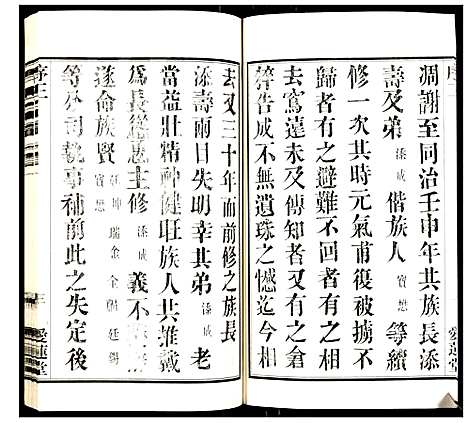 凋謝至同治壬申年其族長添
壽及弟添成偕族人寶懋等續
修一次其時元氣甫復被擄不
歸者有之避難不回者有之相
去窵遠未及傳知者有之倉
猝告成不無遺珠之憾迄今相
去又三十年而前修之族長
添壽兩目失明幸其弟添成老
當益壯精神健旺族人共推戴
為長總悳主修添成義不
遂命族賢寶懋 乾坤 瑞金 全 廷錫
等分司執事補前此之失定後
序
三
愛蓮堂